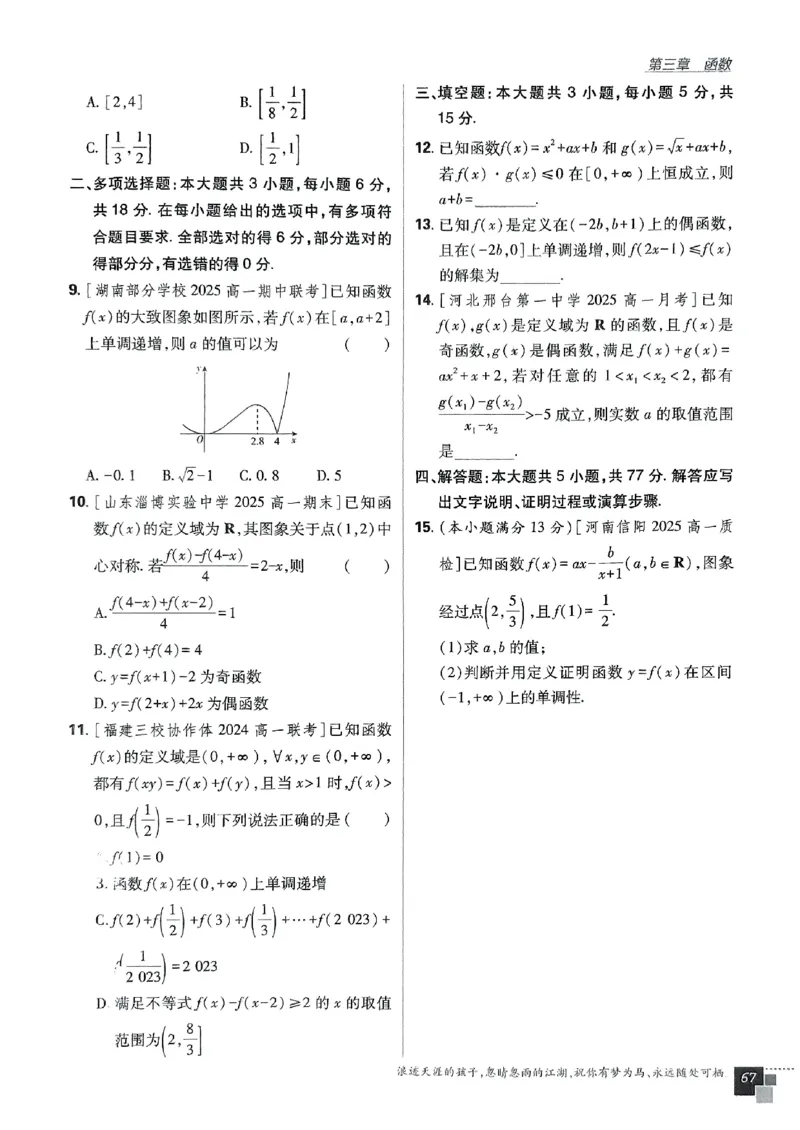 第三章 函数
A. [2,4] B. [1/8, 1/2]
C. [1/3, 1/2] D. [1/2, 1]
二、多项选择题:本大题共 3 小题,每小题 6 分,
共 18 分. 在每小题给出的选项中,有多项符
合题目要求. 全部选对的得 6 分,部分选对的
得部分分,有选错的得 0 分.
9. [湖南部分学校 2025 高一期中联考]已知函数
f(x)的大致图象如图所示,若f(x)在[a,a+2]
上单调递增,则 a 的值可以为 ( )
y
O 2.8 4 x
A. -0.1 B. √2-1 C. 0.8 D. 5
10. [山东淄博实验中学 2025 高一期末]已知函
数f(x)的定义域为 R,其图象关于点(1,2)中
心对称. 若 (f(x)-f(4-x))/4 =2-x,则 ( )
A. (f(4-x)+f(x-2))/4 =1
B. f(2)+f(4)=4
C. y=f(x+1)-2 为奇函数
D. y=f(2+x)+2x 为偶函数
11. [福建三校协作体 2024 高一联考]已知函数
f(x)的定义域是(0,+∞),∀x,y∈(0,+∞),
都有f(xy)=f(x)+f(y),且当 x>1 时,f(x)>
0,且f(1/2)=-1,则下列说法正确的是 ( )
f(1)=0
函数f(x)在(0,+∞)上单调递增
C. f(2)+f(1/2)+f(3)+f(1/3)+…+f(2 023)+
f(1/2 023)=2 023
D. 满足不等式f(x)-f(x-2)≥2 的 x 的取值
范围为(2, 8/3]
三、填空题:本大题共 3 小题,每小题 5 分,共
15 分.
12. 已知函数f(x)=x²+ax+b 和 g(x)=√x+ax+b,
若f(x)·g(x)≤0 在[0,+∞)上恒成立,则
a+b=________.
13. 已知f(x)是定义在(-2b,b+1)上的偶函数,
且在(-2b,0]上单调递增,则f(2x-1)≤f(x)
的解集为________.
14. [河北邢台第一中学 2025 高一月考]已知
f(x),g(x)是定义域为 R 的函数,且f(x)是
奇函数,g(x)是偶函数,满足f(x)+g(x)=
ax²+x+2,若对任意的 1<x₁<x₂<2,都有
(g(x₁)-g(x₂))/(x₁-x₂) >-5 成立,则实数 a 的取值范围
是________.
四、解答题:本大题共 5 小题,共 77 分. 解答应写
出文字说明、证明过程或演算步骤.
15. (本小题满分 13 分)[河南信阳 2025 高一质
检]已知函数f(x)=ax- b/(x+1) (a,b∈R),图象
经过点(2, 5/3),且f(1)= 1/2.
(1)求 a,b 的值;
(2)判断并用定义证明函数 y=f(x)在区间
(-1,+∞)上的单调性.
浪迹天涯的孩子,忽晴忽雨的江湖,祝你有梦为马、永远随处可栖 67